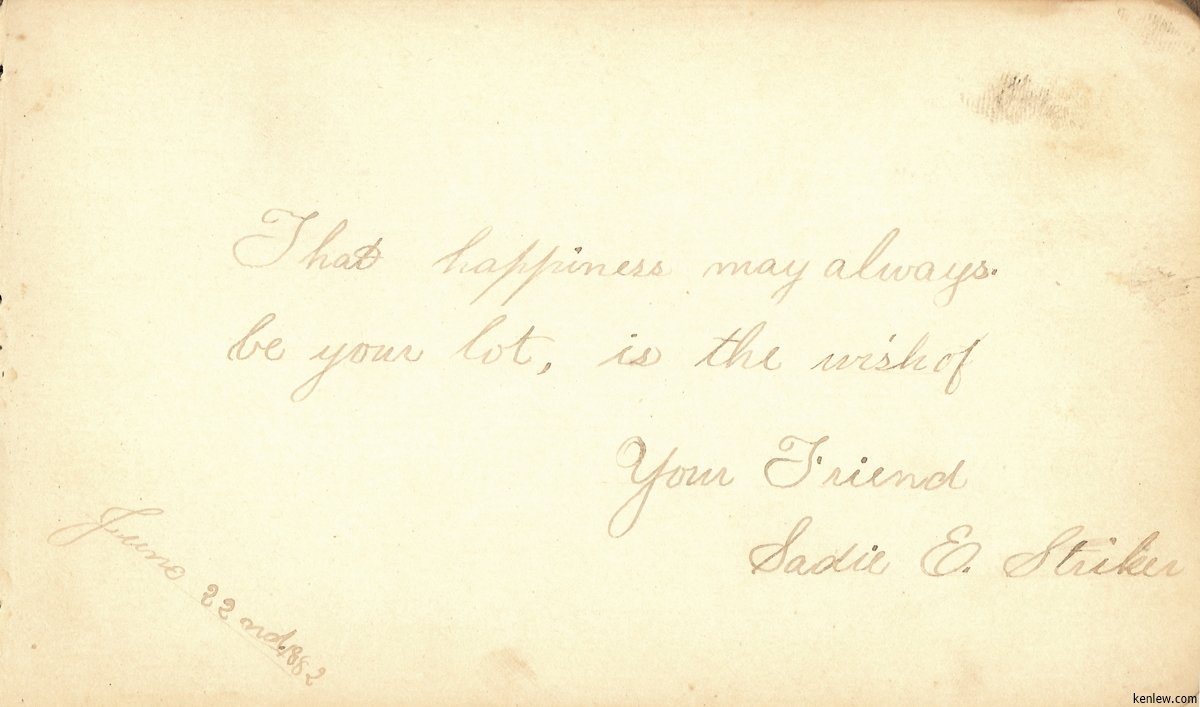 That happiness may always.
be your lot, is the wish of
Your Friend
Sadie E. Striker
June 22nd 1882
kenlew.com